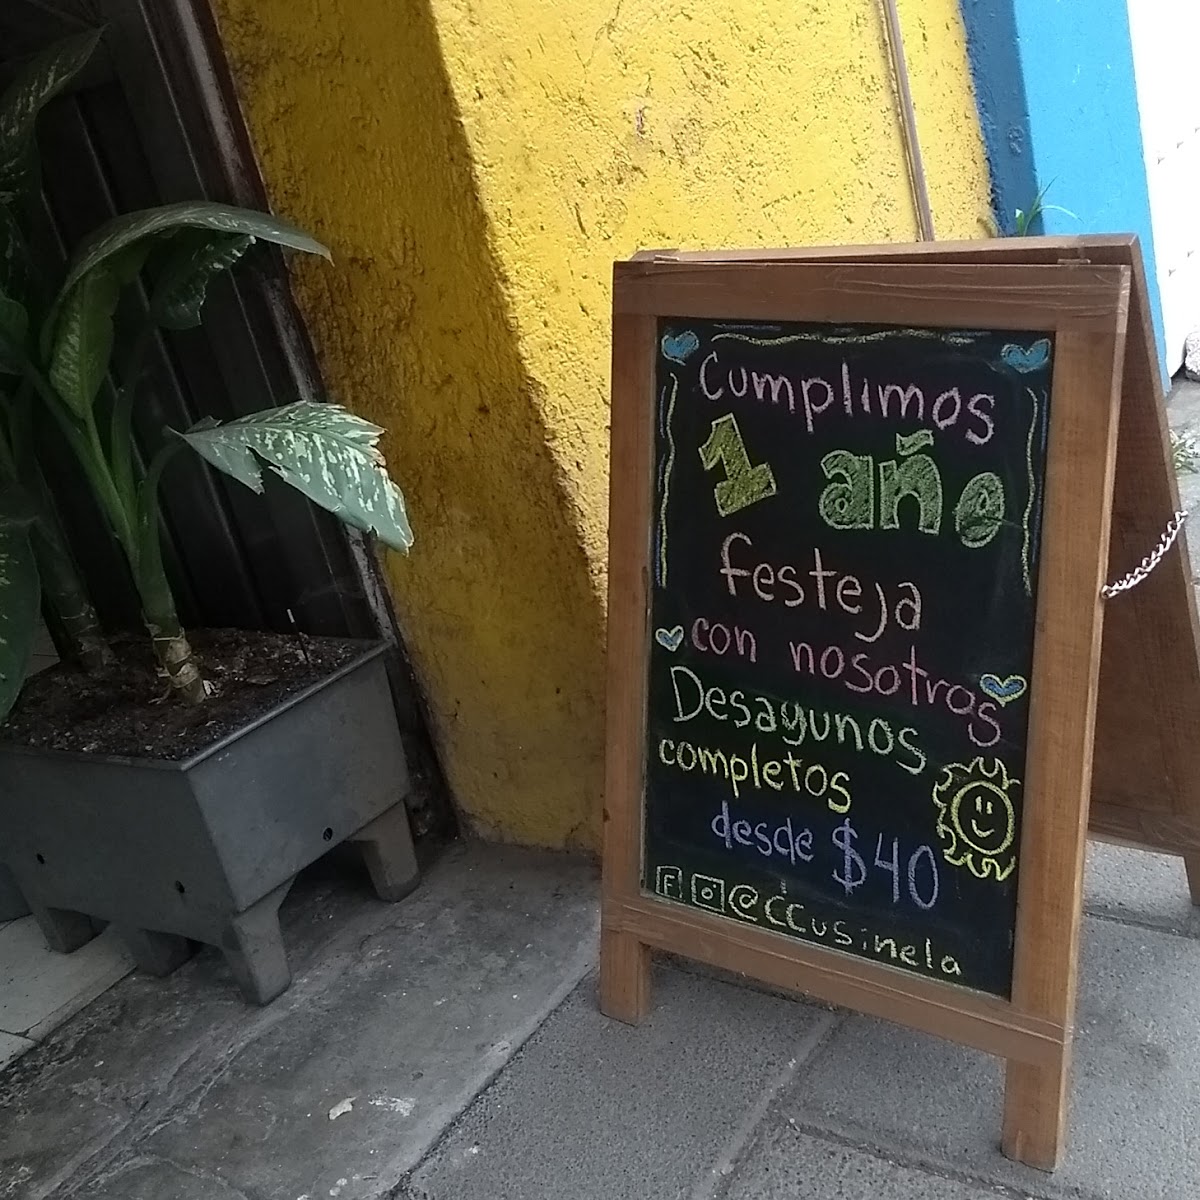 Cumplimos
1 año
festeja
con nosotros
Desayunos
completos
desde $40
@CCusinela